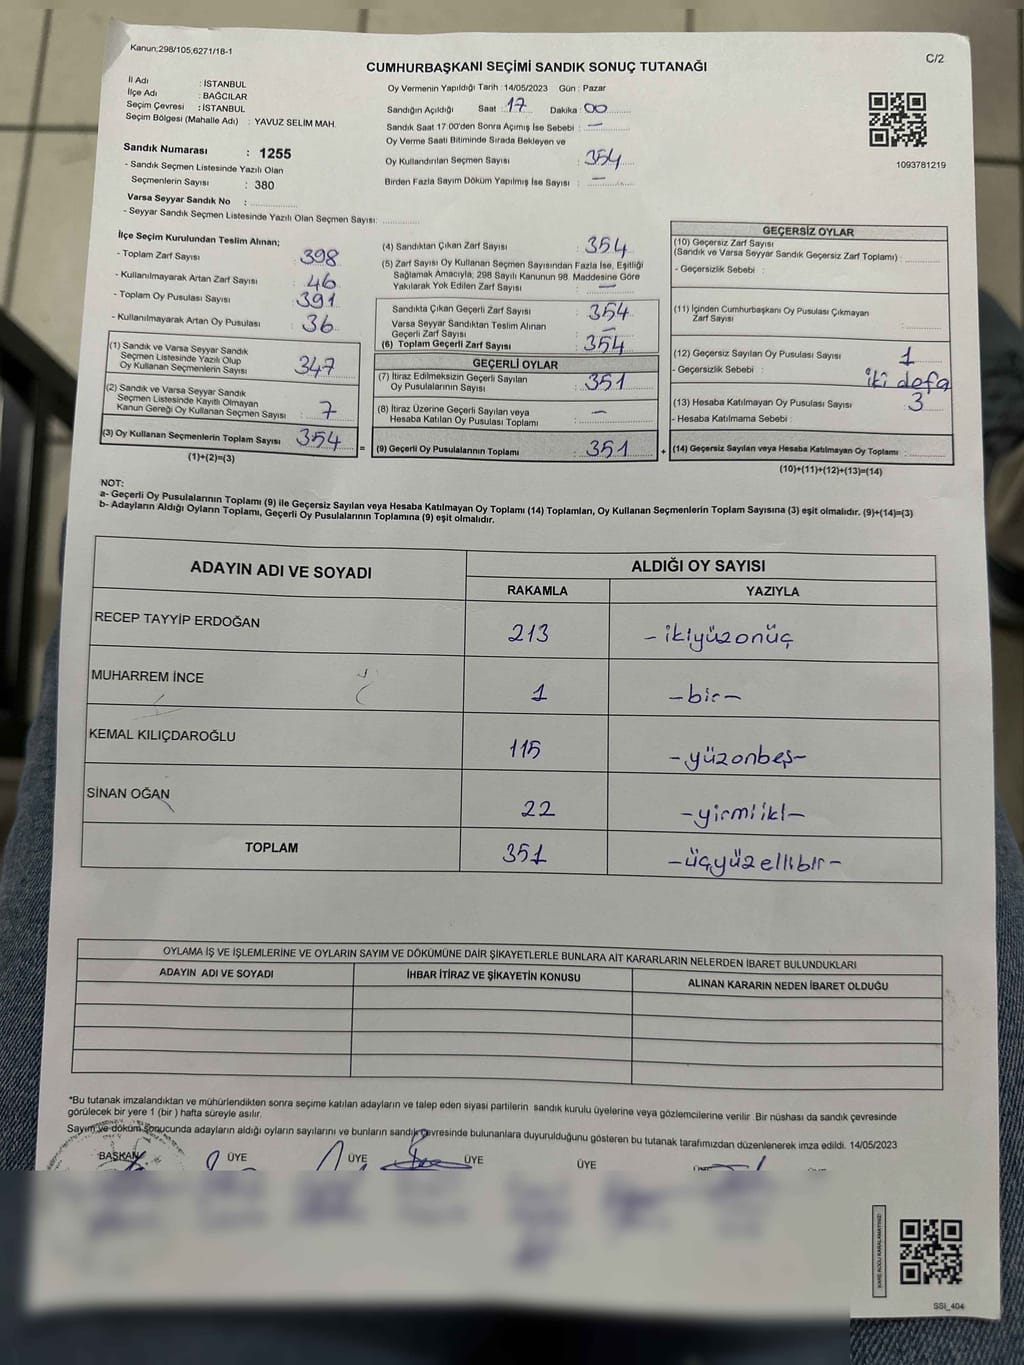 Kanun;298/105,6271/18-1
C/2
CUMHURBAŞKANI SEÇİMİ SANDIK SONUÇ TUTANAĞI
İl Adı : İSTANBUL
İlçe Adı : BAĞCILAR
Seçim Çevresi : İSTANBUL
Seçim Bölgesi (Mahalle Adı) : YAVUZ SELİM MAH.
Sandık Numarası : 1255
- Sandık Seçmen Listesinde Yazılı Olan
Seçmenlerin Sayısı : 380
Varsa Seyyar Sandık No :
- Seyyar Sandık Seçmen Listesinde Yazılı Olan Seçmen Sayısı:
Oy Vermenin Yapıldığı Tarih : 14/05/2023 Gün : Pazar
Sandığın Açıldığı Saat : 17 Dakika : 00
Sandık Saat 17.00'den Sonra Açımış İse Sebebi : —
Oy Verme Saati Bitiminde Sırada Bekleyen ve
Oy Kullandırılan Seçmen Sayısı : 354
Birden Fazla Sayım Döküm Yapılmış İse Sayısı : —
1093781219
İlçe Seçim Kurulundan Teslim Alınan;
- Toplam Zarf Sayısı 398
- Kullanılmayarak Artan Zarf Sayısı 46
- Toplam Oy Pusulası Sayısı 391
- Kullanılmayarak Artan Oy Pusulası 36
(1) Sandık ve Varsa Seyyar Sandık
Seçmen Listesinde Yazılı Olup
Oy Kullanan Seçmenlerin Sayısı 347
(2) Sandık ve Varsa Seyyar Sandık
Seçmen Listesinde Kayıtlı Olmayan
Kanun Gereği Oy Kullanan Seçmen Sayısı : 7
(3) Oy Kullanan Seçmenlerin Toplam Sayısı 354
(1)+(2)=(3)
(4) Sandıktan Çıkan Zarf Sayısı : 354
(5) Zarf Sayısı Oy Kullanan Seçmen Sayısından Fazla İse, Eşitliği
Sağlamak Amacıyla, 298 Sayılı Kanunun 98. Maddesine Göre
Yakılarak Yok Edilen Zarf Sayısı : —
Sandıkta Çıkan Geçerli Zarf Sayısı : 354
Varsa Seyyar Sandıktan Teslim Alınan
Geçerli Zarf Sayısı : —
(6) Toplam Geçerli Zarf Sayısı : 354
GEÇERLİ OYLAR
(7) İtiraz Edilmeksizin Geçerli Sayılan
Oy Pusulalarının Sayısı : 351
(8) İtiraz Üzerine Geçerli Sayılan veya
Hesaba Katılan Oy Pusulası Toplamı : —
= (9) Geçerli Oy Pusulalarının Toplamı : 351 +
GEÇERSİZ OYLAR
(10) Geçersiz Zarf Sayısı
(Sandık ve Varsa Seyyar Sandık Geçersiz Zarf Toplamı) :
- Geçersizlik Sebebi :
(11) İçinden Cumhurbaşkanı Oy Pusulası Çıkmayan
Zarf Sayısı :
(12) Geçersiz Sayılan Oy Pusulası Sayısı : 1
- Geçersizlik Sebebi : iki defa
(13) Hesaba Katılmayan Oy Pusulası Sayısı : 3
- Hesaba Katılmama Sebebi :
(14) Geçersiz Sayılan veya Hesaba Katılmayan Oy Toplamı :
(10)+(11)+(12)+(13)=(14)
NOT:
a- Geçerli Oy Pusulalarının Toplamı (9) ile Geçersiz Sayılan veya Hesaba Katılmayan Oy Toplamı (14) Toplamları, Oy Kullanan Seçmenlerin Toplam Sayısına (3) eşit olmalıdır. (9)+(14)=(3)
b- Adayların Aldığı Oyların Toplamı, Geçerli Oy Pusulalarının Toplamına (9) eşit olmalıdır.
ADAYIN ADI VE SOYADI ALDIĞI OY SAYISI
RAKAMLA YAZIYLA
RECEP TAYYİP ERDOĞAN 213 - ikiyüzonüç
MUHARREM İNCE 1 -bir-
KEMAL KILIÇDAROĞLU 115 -yüzonbeş-
SİNAN OĞAN 22 -yirmiiki-
TOPLAM 351 -üçyüzellibir-
OYLAMA İŞ VE İŞLEMLERİNE VE OYLARIN SAYIM VE DÖKÜMÜNE DAİR ŞİKAYETLERLE BUNLARA AİT KARARLARIN NELERDEN İBARET BULUNDUKLARI
ADAYIN ADI VE SOYADI İHBAR İTİRAZ VE ŞİKAYETİN KONUSU ALINAN KARARIN NEDEN İBARET OLDUĞU
*Bu tutanak imzalandıktan ve mühürlendikten sonra seçime katılan adayların ve talep eden siyasi partilerin sandık kurulu üyelerine veya gözlemcilerine verilir. Bir nüshası da sandık çevresinde
görülecek bir yere 1 (bir ) hafta süreyle asılır.
Sayım ve döküm sonucunda adayların aldığı oyların sayılarını ve bunların sandık çevresinde bulunanlara duyurulduğunu gösteren bu tutanak tarafımızdan düzenlenerek imza edildi. 14/05/2023
BAŞKAN ÜYE ÜYE ÜYE ÜYE
SSI_404